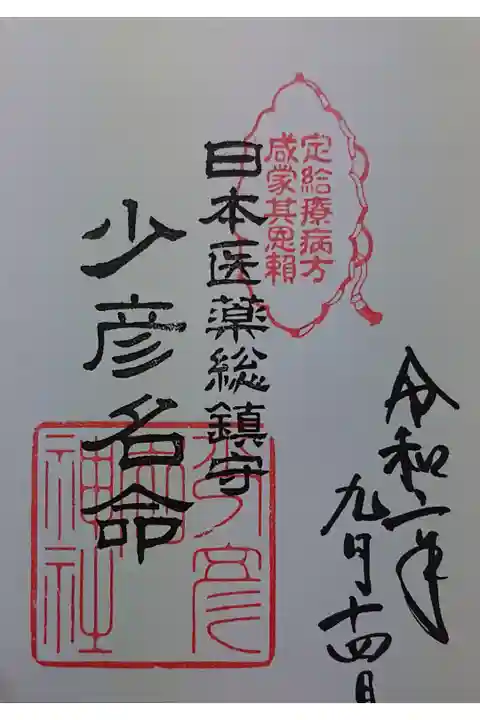 定給療病方
咸蒙其恩頼
日本医薬総鎮守
少彦名命
少彦名
神社
令和二年
九月十四日